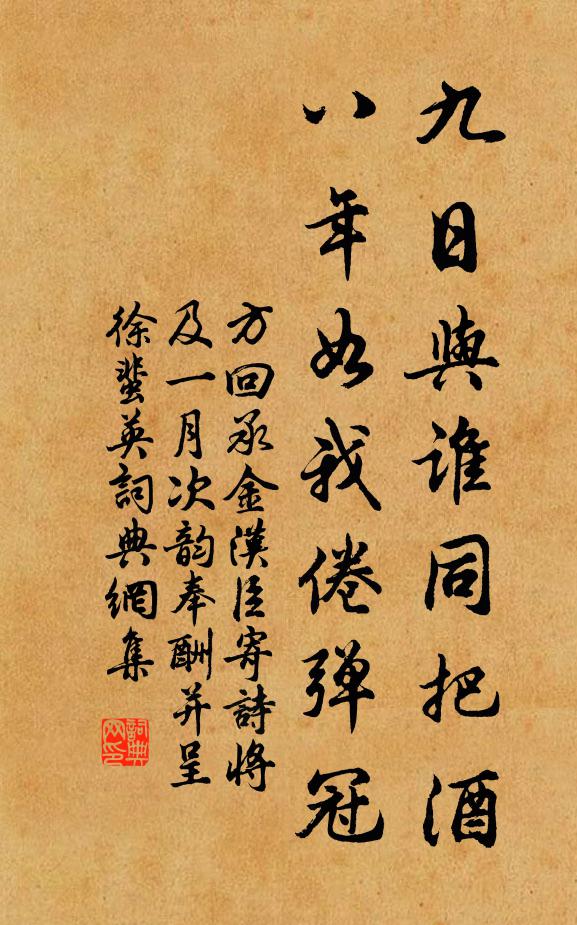 九日與誰同把酒
八年如我倦彈冠
方回承金漢臣寄詩將
及一月次韵奉酬并呈
徐蜚英詞典網集
詞典网印